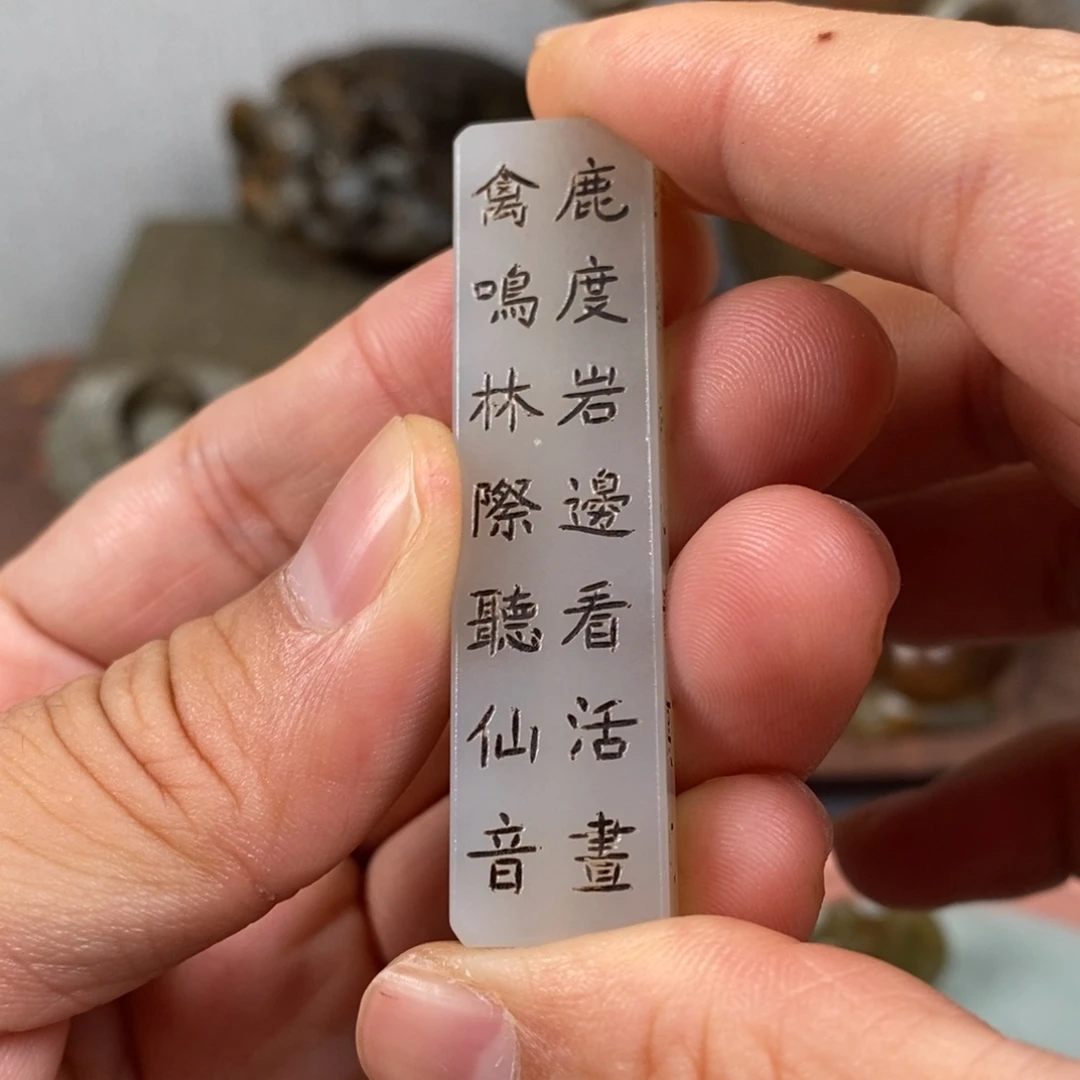 鹿度岩邊看活畫
禽鳴林際聽仙音